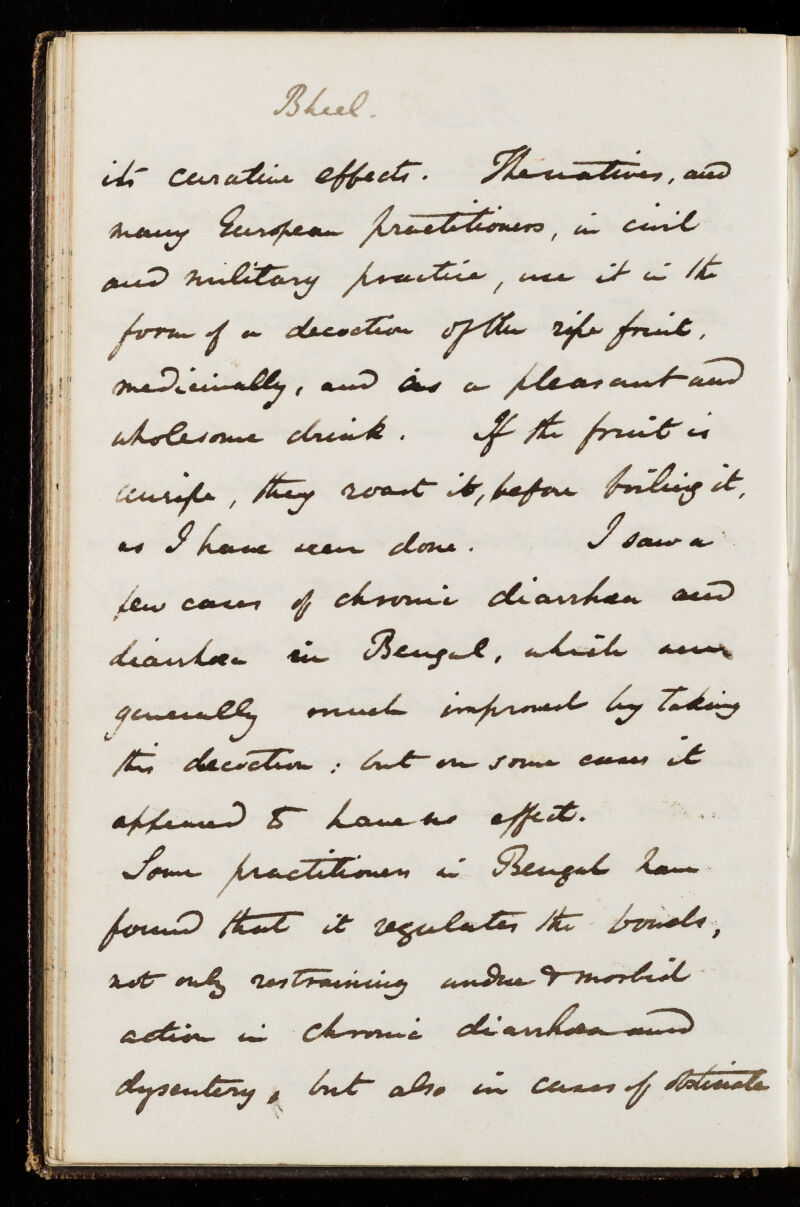 Bheel.
its curative effects. The natives, and
many European practitioners, in civil
and military practice, use it in the
form of a decoction of the ripe fruit,
medicinally, and as a pleasant and
wholesome drink. If the fruit is
unripe, they roast it, before boiling it,
as I have seen done. I saw a
few cases of chronic diarrhœa and
diarrhœa in Bengal, which were
generally much improved by taking
this decoction; but in some cases it
appeared to have no effect.
Some practitioners in Bengal have
found that it regulates the bowels,
not only restraining undue & morbid
action in chronic diarrhœa and
dysentery, but also in cases of obstinate